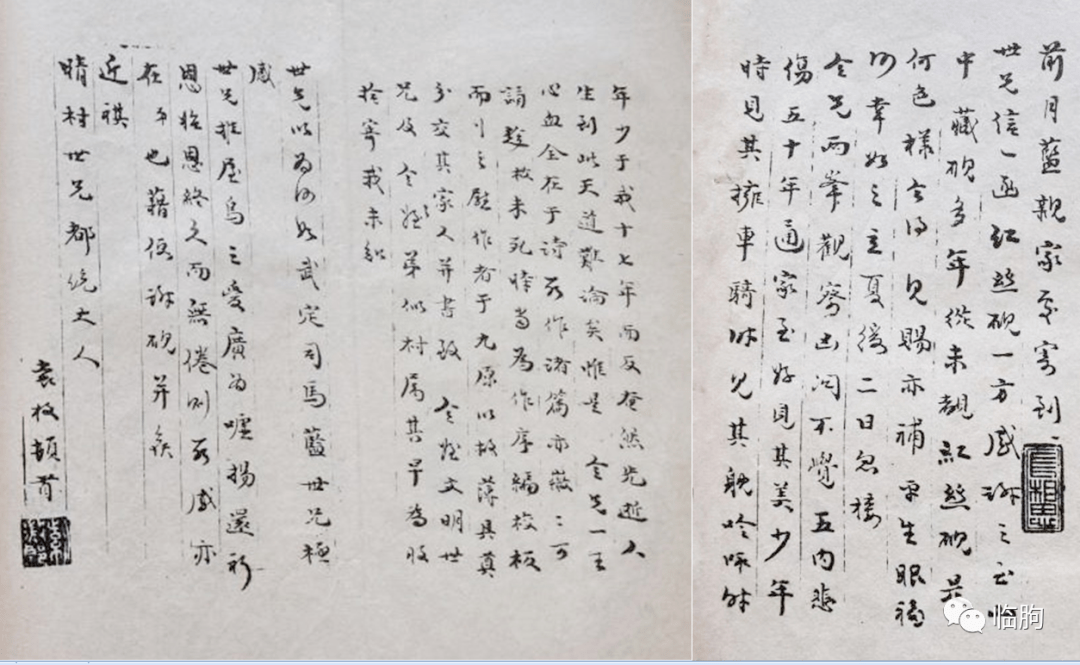 前月藍親家處寄到
長相思
世兄信一函紅丝硯一方感謝之至
中藏硯多年從未覩紅絲硯是
何色樣今得見賜亦補平生眼福
何幸如之立夏後二日忽接
令兄兩峯觀察凶問不覺五內悲
傷五十年通家至好見其美少年
時見其擁車騎時見其耽吟咏時
年少于我十七年而反奄然先逝人
生到此天道難論矣惟是令兄一生
心血全在于詩所作諸篇亦可
誦趁枚未死時当為作序編校板
而行之慰作者于九原以故薄具奠
分交其家人并書致令姪文明世
兄及令弟似村属其早為收
拾寄我未知
世兄以為何如武定司馬藍世兄極
感
世兄推屋烏之愛廣為噓揚還祈
恩始恩終久而無倦則所感亦
在弟也藉便謝硯并候
近祺
晴村世兄都统大人
袁枚頓首
临朐